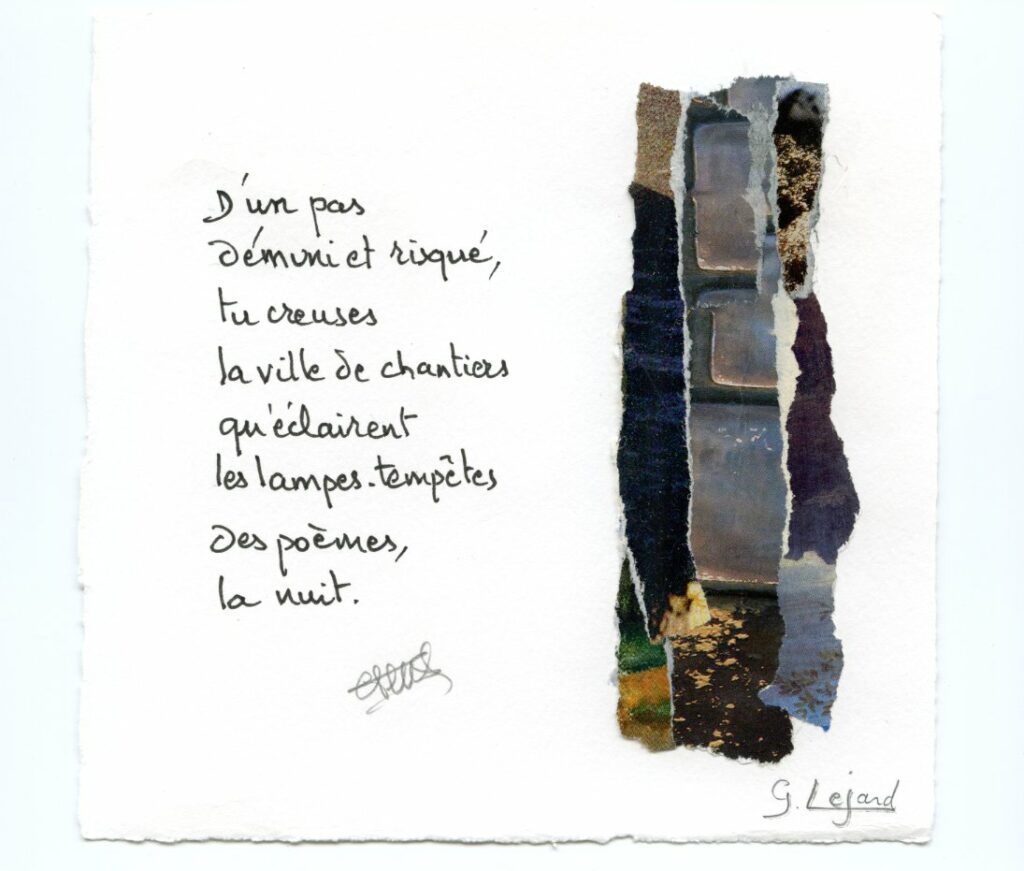 D'un pas
démuni et risqué,
tu creuses
la ville de chantiers
qu'éclairent
les lampes-tempêtes
des poèmes,
la nuit.
G. Lejard